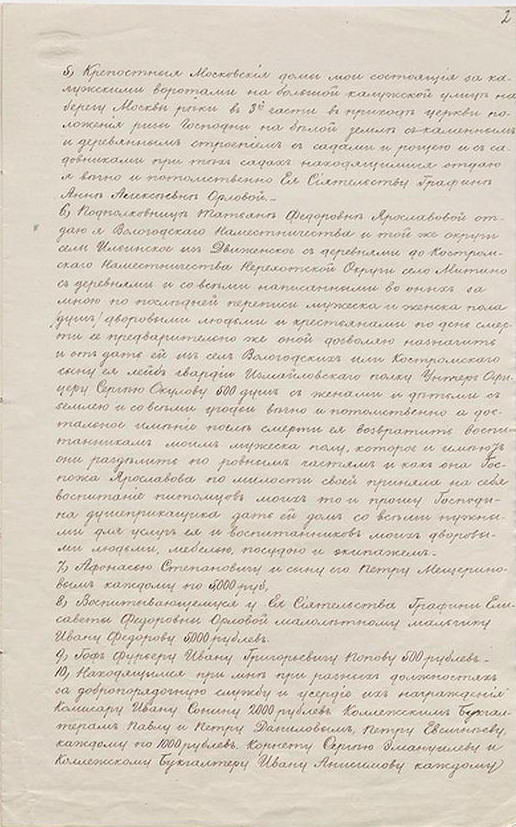 2
5) Крепостныя Московскія домы мои состоящія за ка-
лужскими воротами на большой калужской улицѣ на
берегу Москвы рѣки въ 3й части въ приходѣ церкви по-
ложенія ризы Господни на бѣлой землѣ съ каменнымъ
и деревяннымъ строеніемъ съ садами и рощею и съ са-
довниками при тѣхъ садахъ находящимися отдаю
я вѣчно и потомственно Ея Сіятельству Графинѣ
Аннѣ Алексѣевнѣ Орловой.-
6) Подполковницѣ Татьянѣ Федоровнѣ Ярославовой от-
даю я Вологодскаго Наместничества и той же округи
село Ильинское изъ Движенское съ деревнями до Костром-
скаго Наместничества Нерехотской Округи село Митино
съ деревнями и со всѣми написанными во оныхъ за
мною по послѣдней переписи мужеска и женска пола
душъ/ дворовыми людьми и крестьянами по день смер-
ти ее предварительно же оной дозволяю назначить
и отъ дать ей изъ селъ Вологодскихъ или Костромскаго
сыну ея лейбъ гвардіи Измайловскаго полку Унтеръ Офи-
церу Сергѣю Окулову 500 душъ съ женами и дѣтьми съ
землею и со всѣми угодьи вѣчно и потомственно а дос-
тальное имѣніе послѣ смерти ея возвратить воспи-
танникамъ моимъ мужеска полу, которое и имѣютъ
они раздѣлить по ровнымъ частямъ и какъ она Гос-
пожа Ярославова по милости своей приняла на себя
воспитаніе питомцовъ моихъ то и прошу Господи-
на душеприкащика дать ей домъ со всѣми нужны-
ми для услугъ ея и воспитанниковъ моихъ дворовы-
ми людьми, мебелью, посудою и экипажемъ.-
7) Афонасью Степановичу и сыну его Петру Мещерино-
вымъ каждому по 5,000 руб.
8) Воспитывающемуся у Ея Сіятельства Графини Ели-
саветы Федоровны Орловой малолѣтному мальчику
Ивану Федорову 5000 рублевъ.
9) Гофъ Фурьеру Ивану Григорьевичу Попову 500 рублевъ.-
10) Находящимся при мнѣ при разныхъ должностяхъ
за добропорядочную службу и усердіе ихъ награжденія
Комисару Ивану Сонину 2000 рублевъ. Коллежскимъ Бухгал-
терамъ Павлу и Петру Даниловымъ, Петру Евсигнѣеву
каждому по 1000 рублевъ. Корнету Сергѣю Эмануилеву и
Коллежскому Бухгалтеру Ивану Анисимову каждому